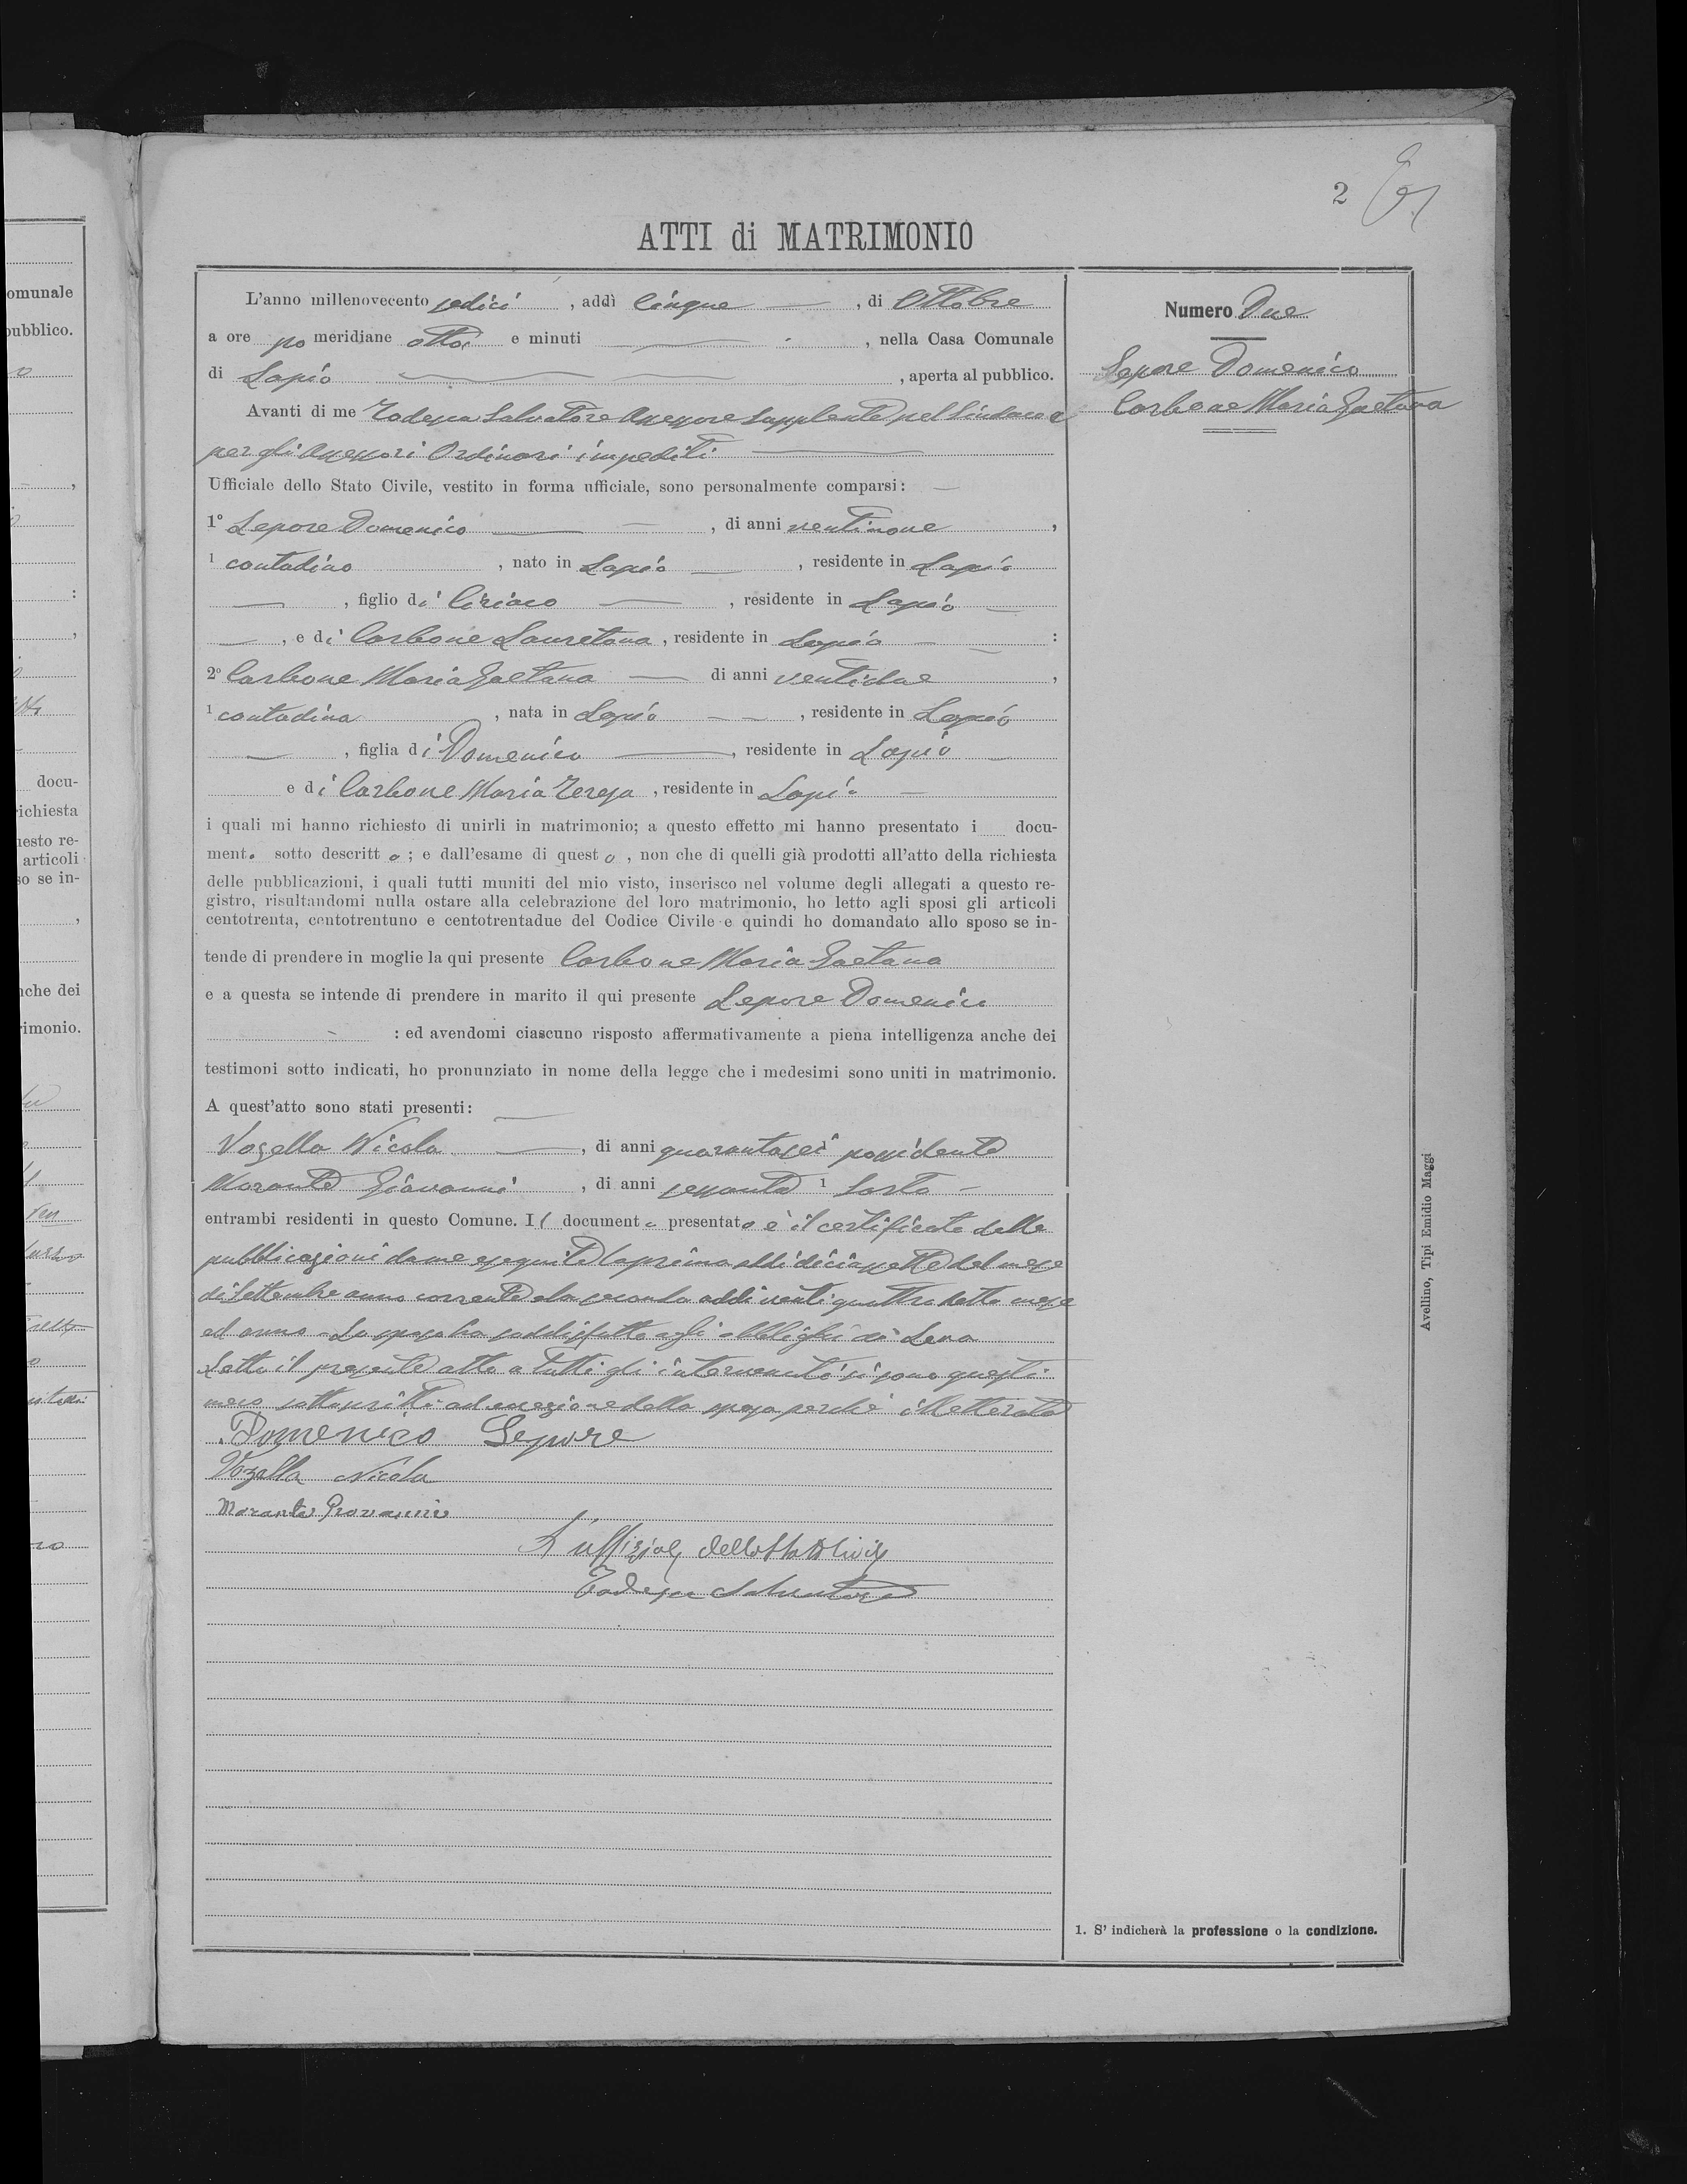 2
ATTI di MATRIMONIO
L'anno millenovecento sedici, addì Cinque, di Ottobre
a ore po meridiane otto e minuti, nella Casa Comunale
di Lapio, aperta al pubblico.
Avanti di me Todesca Salvatore Assessore Supplente pel Sindaco e
per gli Assessori Ordinari impediti
Ufficiale dello Stato Civile, vestito in forma ufficiale, sono personalmente comparsi:
1° Lepore Domenico, di anni ventinove,
1 contadino, nato in Lapio, residente in Lapio
, figlio di Ciriaco, residente in Lapio
, e di Carbone Lauretana, residente in Lapio :
2° Carbone Maria Gaetana di anni ventidue,
1 contadina, nata in Lapio, residente in Lapio
, figlia di Domenico, residente in Lapio
e di Carbone Maria Teresa, residente in Lapio
i quali mi hanno richiesto di unirli in matrimonio; a questo effetto mi hanno presentato i docu-
mento sotto descritto; e dall'esame di questo, non che di quelli già prodotti all'atto della richiesta
delle pubblicazioni, i quali tutti muniti del mio visto, inserisco nel volume degli allegati a questo re-
gistro, risultandomi nulla ostare alla celebrazione del loro matrimonio, ho letto agli sposi gli articoli
centotrenta, centotrentuno e centotrentadue del Codice Civile e quindi ho domandato allo sposo se in-
tende di prendere in moglie la qui presente Carbone Maria Gaetana
e a questa se intende di prendere in marito il qui presente Lepore Domenico
: ed avendomi ciascuno risposto affermativamente a piena intelligenza anche dei
testimoni sotto indicati, ho pronunziato in nome della legge che i medesimi sono uniti in matrimonio.
A quest'atto sono stati presenti:
Vozella Nicola, di anni quarantasei possidente
Morante Giovanni, di anni sessanta 1 Sarto
entrambi residenti in questo Comune. Il documento presentato è il certificato delle
pubblicazioni da me eseguite la prima addì diciassette del mese
di Settembre anno corrente e la seconda addì ventiquattro detto mese
ed anno. Lo sposo ha soddisfatto agli obblighi di Leva
Letto il presente atto a tutti gli intervenuti si sono questi
meco sottoscritti ad eccezione della sposa perchè illetterata
Domenico Lepore
Vozella Nicola
Morante Giovanni
L'uffiziale dello Stato Civile
Todesca Salvatore
Numero Due
Lepore Domenico
Carbone Maria Gaetana
1. S' indicherà la professione o la condizione.
Avellino, Tipi Emidio Maggi
omunale
pubblico.
docu-
richiesta
uesto re-
articoli
so se in-
nche dei
rimonio.